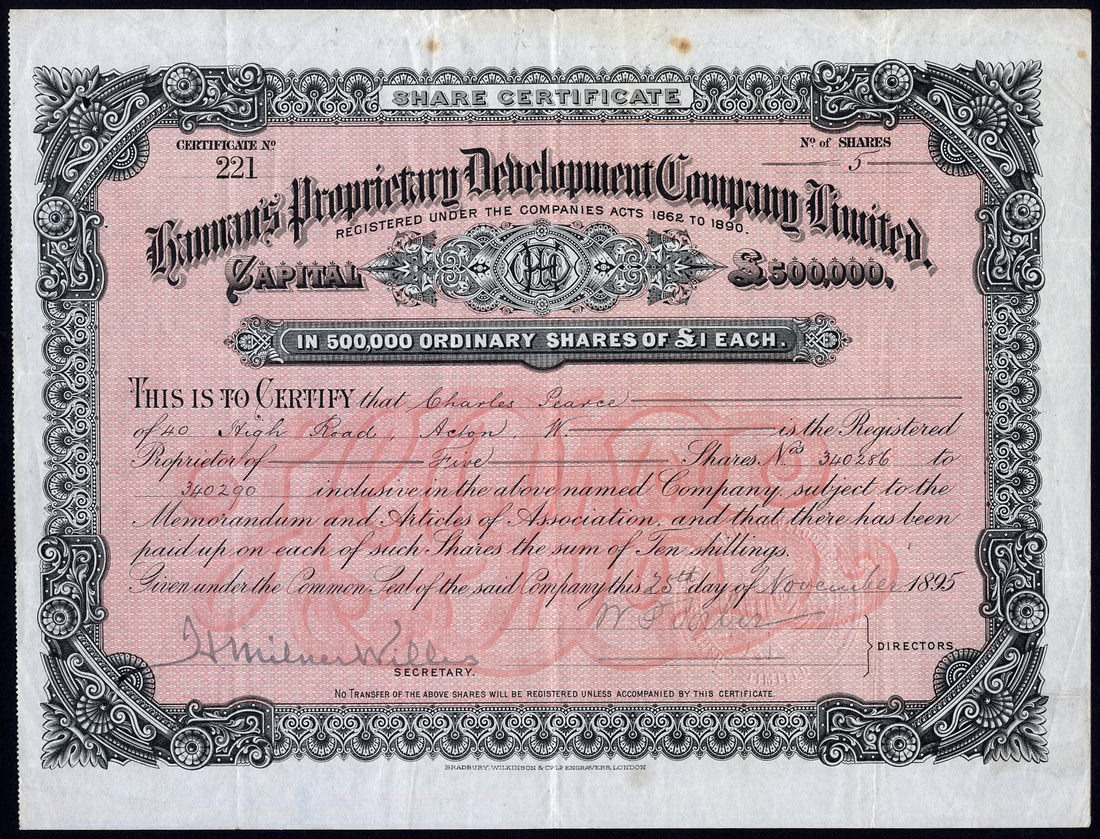 SHARE CERTIFICATE
CERTIFICATE No
221
No of SHARES
5
Hannan's Proprietary Development Company Limited.
REGISTERED UNDER THE COMPANIES ACTS 1862 TO 1890.
CAPITAL £500,000.
IN 500,000 ORDINARY SHARES OF £1 EACH.
THIS IS TO CERTIFY that Charles Pearce
of 40 High Road, Acton, W. is the Registered
Proprietor of Five Shares, Nos 340286 to
340290 inclusive in the above named Company, subject to the
Memorandum and Articles of Association, and that there has been
paid up on each of such Shares the sum of Ten shillings.
Given under the Common Seal of the said Company this 25th day of November 1895
H Milner Willis
SECRETARY.
DIRECTORS
LIMITED
No TRANSFER OF THE ABOVE SHARES WILL BE REGISTERED UNLESS ACCOMPANIED BY THIS CERTIFICATE.
BRADBURY, WILKINSON & Co Ld ENGRAVERS, LONDON